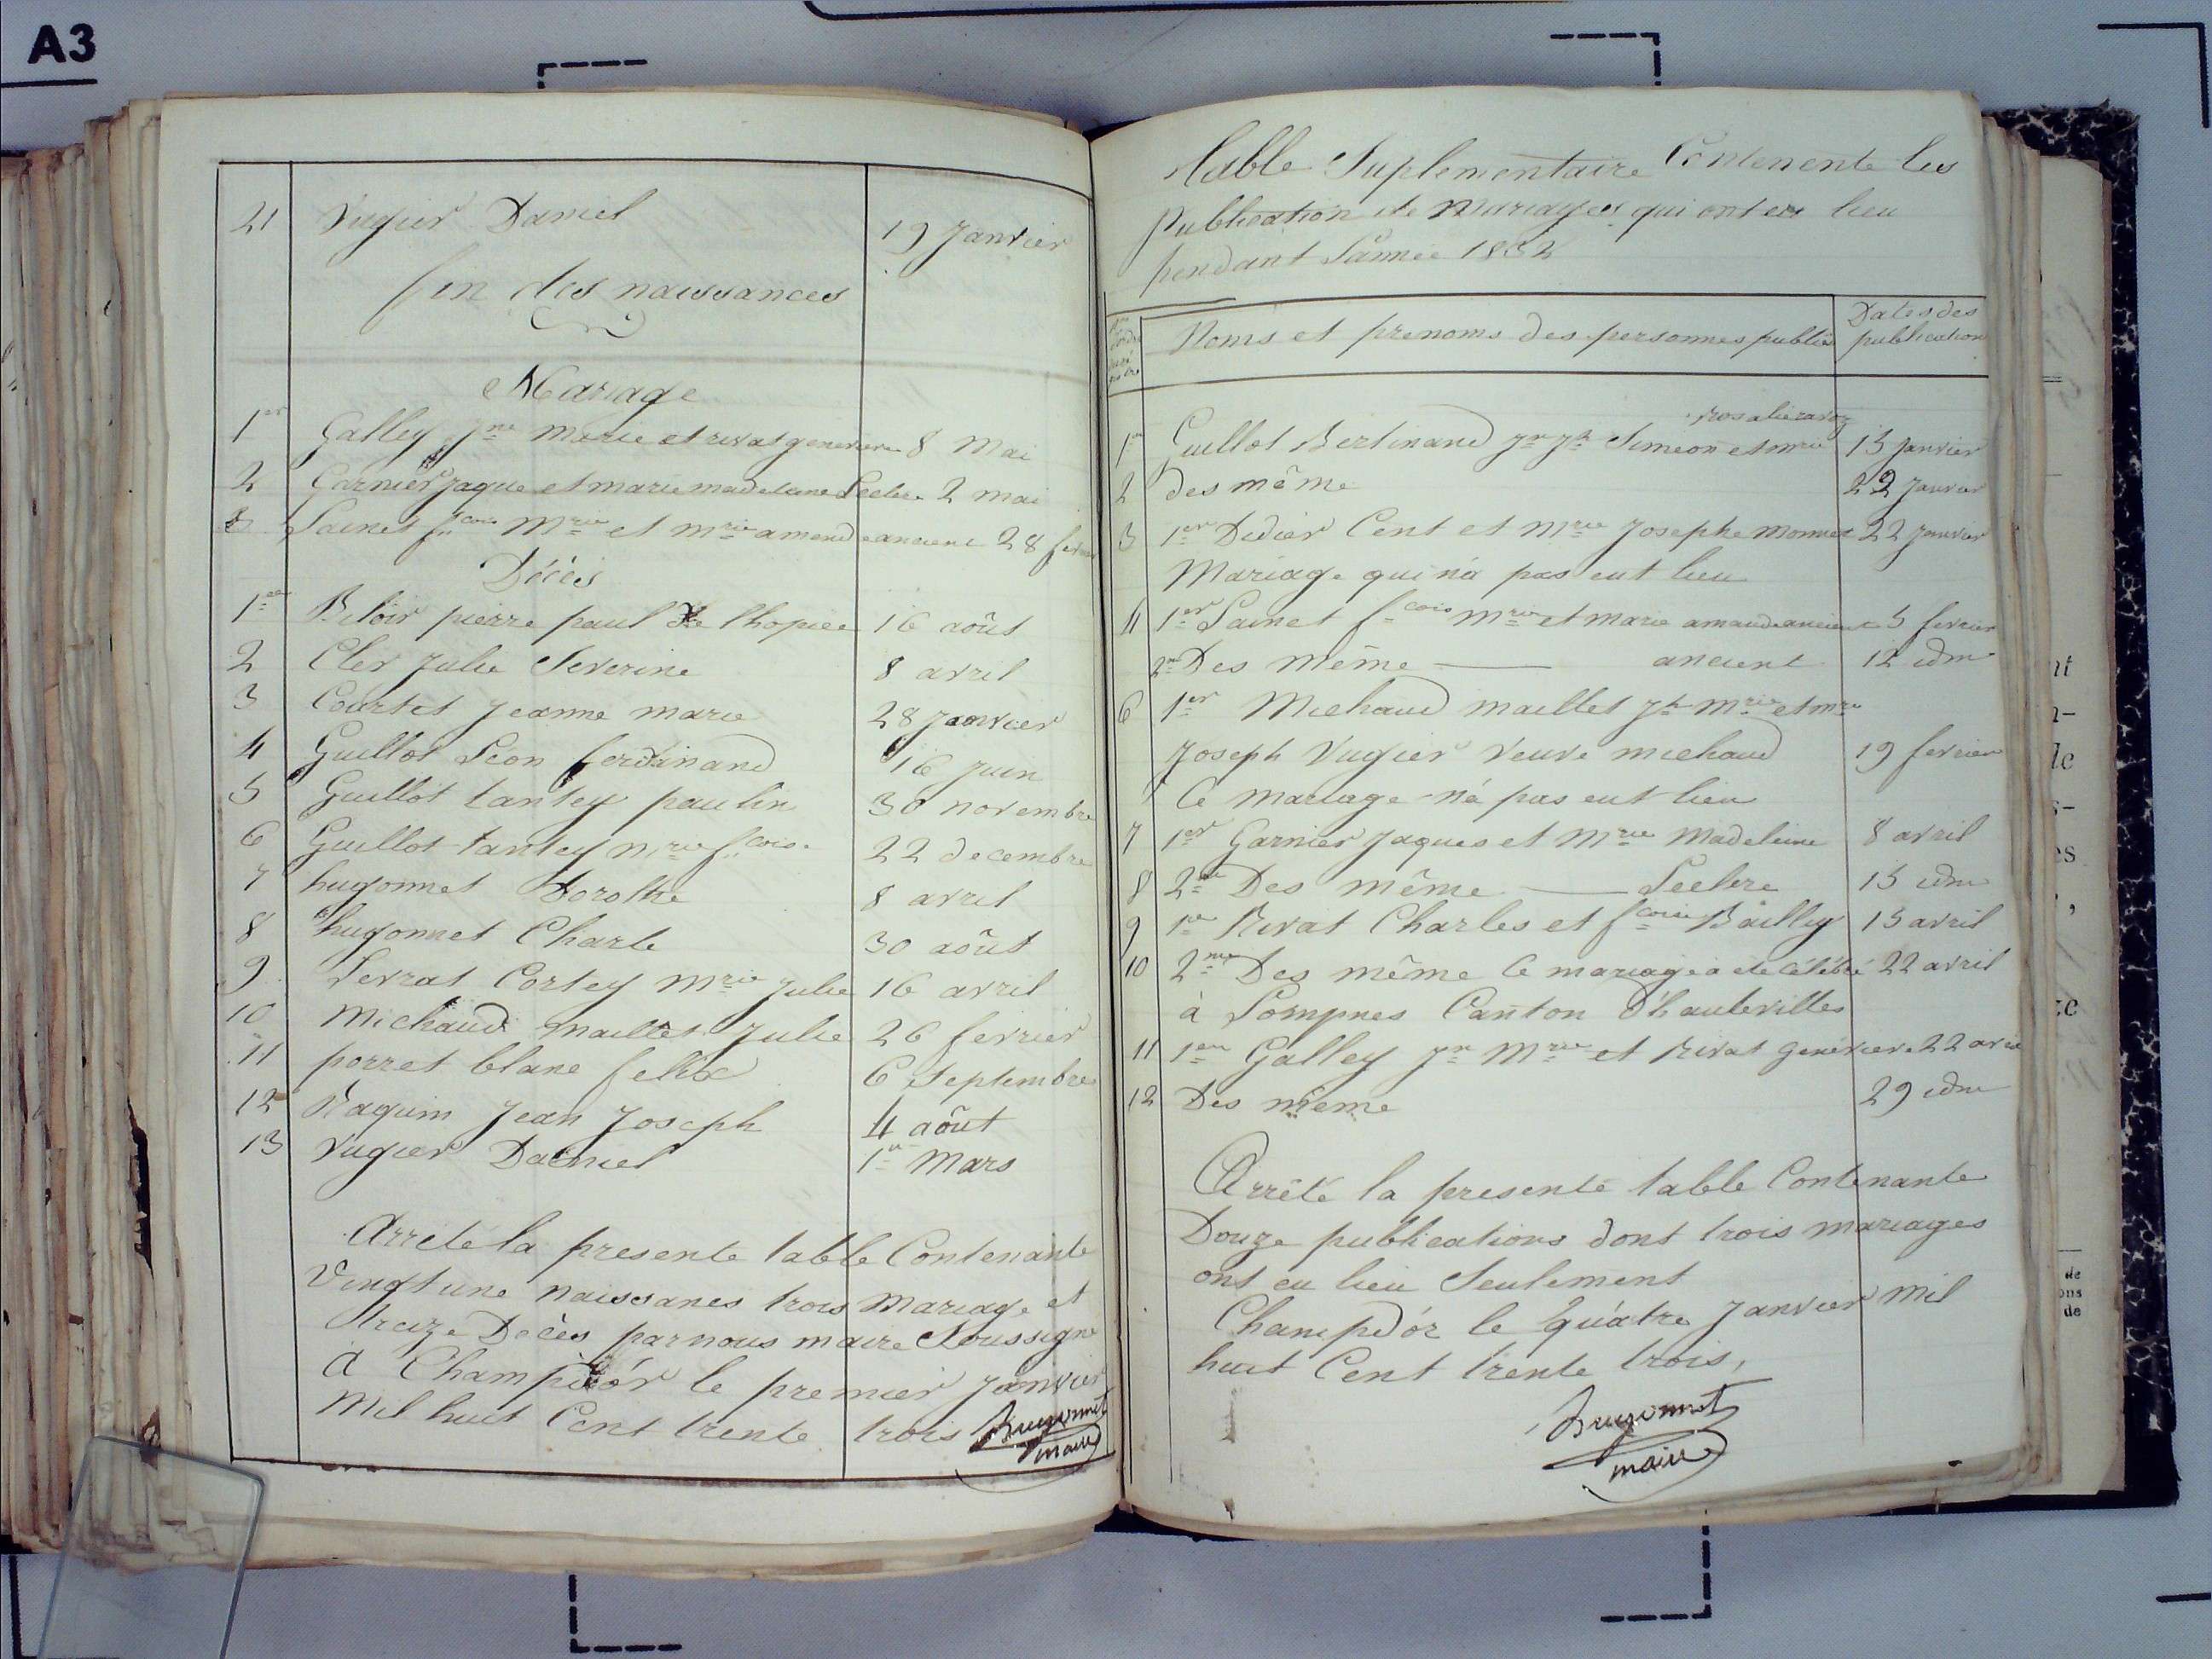 A3
21 Vugier Daniel 19 Janvier
fin des naissances
Mariage
1er Galley Jne Marie et rivat genevieve 8 Mai
2 Garnier Jaque et marie madelaine Leclere 2 mai
3 Lainet fcois Mrie et mrie amende ancient 28 fevrier
Décès
1er Bitoir pierre paul De lhopice 16 aôut
2 Cler Julie Severine 8 avril
3 Courtet Jeanne marie 28 Janvier
4 Guillot Léon ferdinand 16 Juin
5 Guillot tantey paulin 30 novembre
6 Guillot tantey mrie fcoise 22 decembre
7 hugonnet Dorothe 8 avril
8 hugonnet Charle 30 aôut
9 Levrat Cortey Mrie Julie 16 avril
10 Michaud maillet Julie 26 fevrier
11 porret blanc felix 6 Septembre
12 Raquin Jean Joseph 4 aôut
13 Vugier Daniel 1er Mars
Arrêté la presente table Contenante
Vingt une naissances trois Mariage et
treize Décès par nous maire Soussigné
à Champdór le premier Janvier
Mil huit Cent trente trois
Brugonnet
maire
table Suplementaire Contenente les
Publication de Mariages qui ont eu lieu
pendant L'année 1832
Noms et prenoms des personnes publiés
Dates des
publication
rosalie ravoz
1er Guillot Bertinand Jn Jh Simeon et mrie 15 Janvier
2 des même 22 Janvier
3 1er Didier Cent et Mrie Josephe monnet 22 Janvier
Mariage qui n'a pas eut lieu
4 1er Lainet fcois mrie et marie amande ancient 5 fevrier
2me Des même ancient 12 idm
6 1er Michaud maillet Jh mrie et mrie
Joseph Vugier Veuve michaud 19 fevrier
Ce mariage n'a pas eut lieu
7 1er Garnier Jaques et Mrie Madeleine 8 avril
8 2me Des même Leclere 15 idm
9 1er Rivat Charles et fcoise Bailly 15 avril
10 2me Des même Ce mariage a ete Célébré 22 avril
à Lompnes Canton D'hautevilles
11 1er Galley Jn Mrie et rivat genevieve 22 avril
12 Des même 29 idm
Arrêté la presente table Contenante
Douze publications dont trois mariages
ont eu lieu Seulement
Champdór le quatre Janvier mil
huit Cent trente trois,
Brugonnet
maire